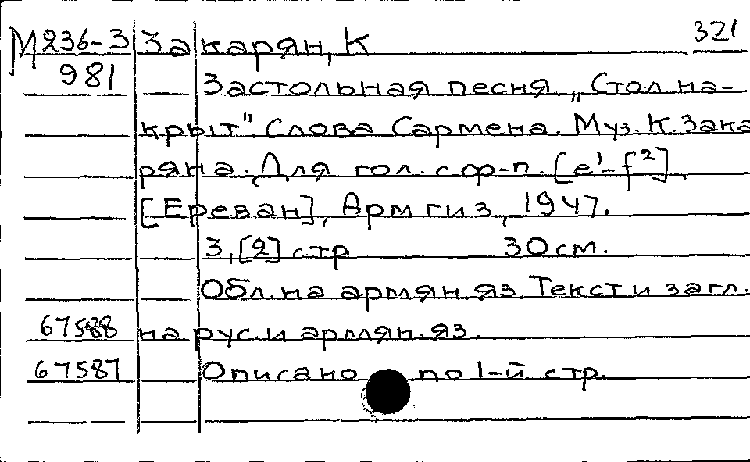 М236-3 Закарян, К 321
981 Застольная песня „Стол на-
крыт" Слова Сармена. Муз. К. Зака
ряна. Для гол. с ф-п. [e¹-f²].
[Ереван], Армгиз, 1947.
3, [2] стр 30 см.
Обл. на армян. яз. Текст и загл.
67588 на рус. и армян. яз.
67587 Описано по 1-й стр.